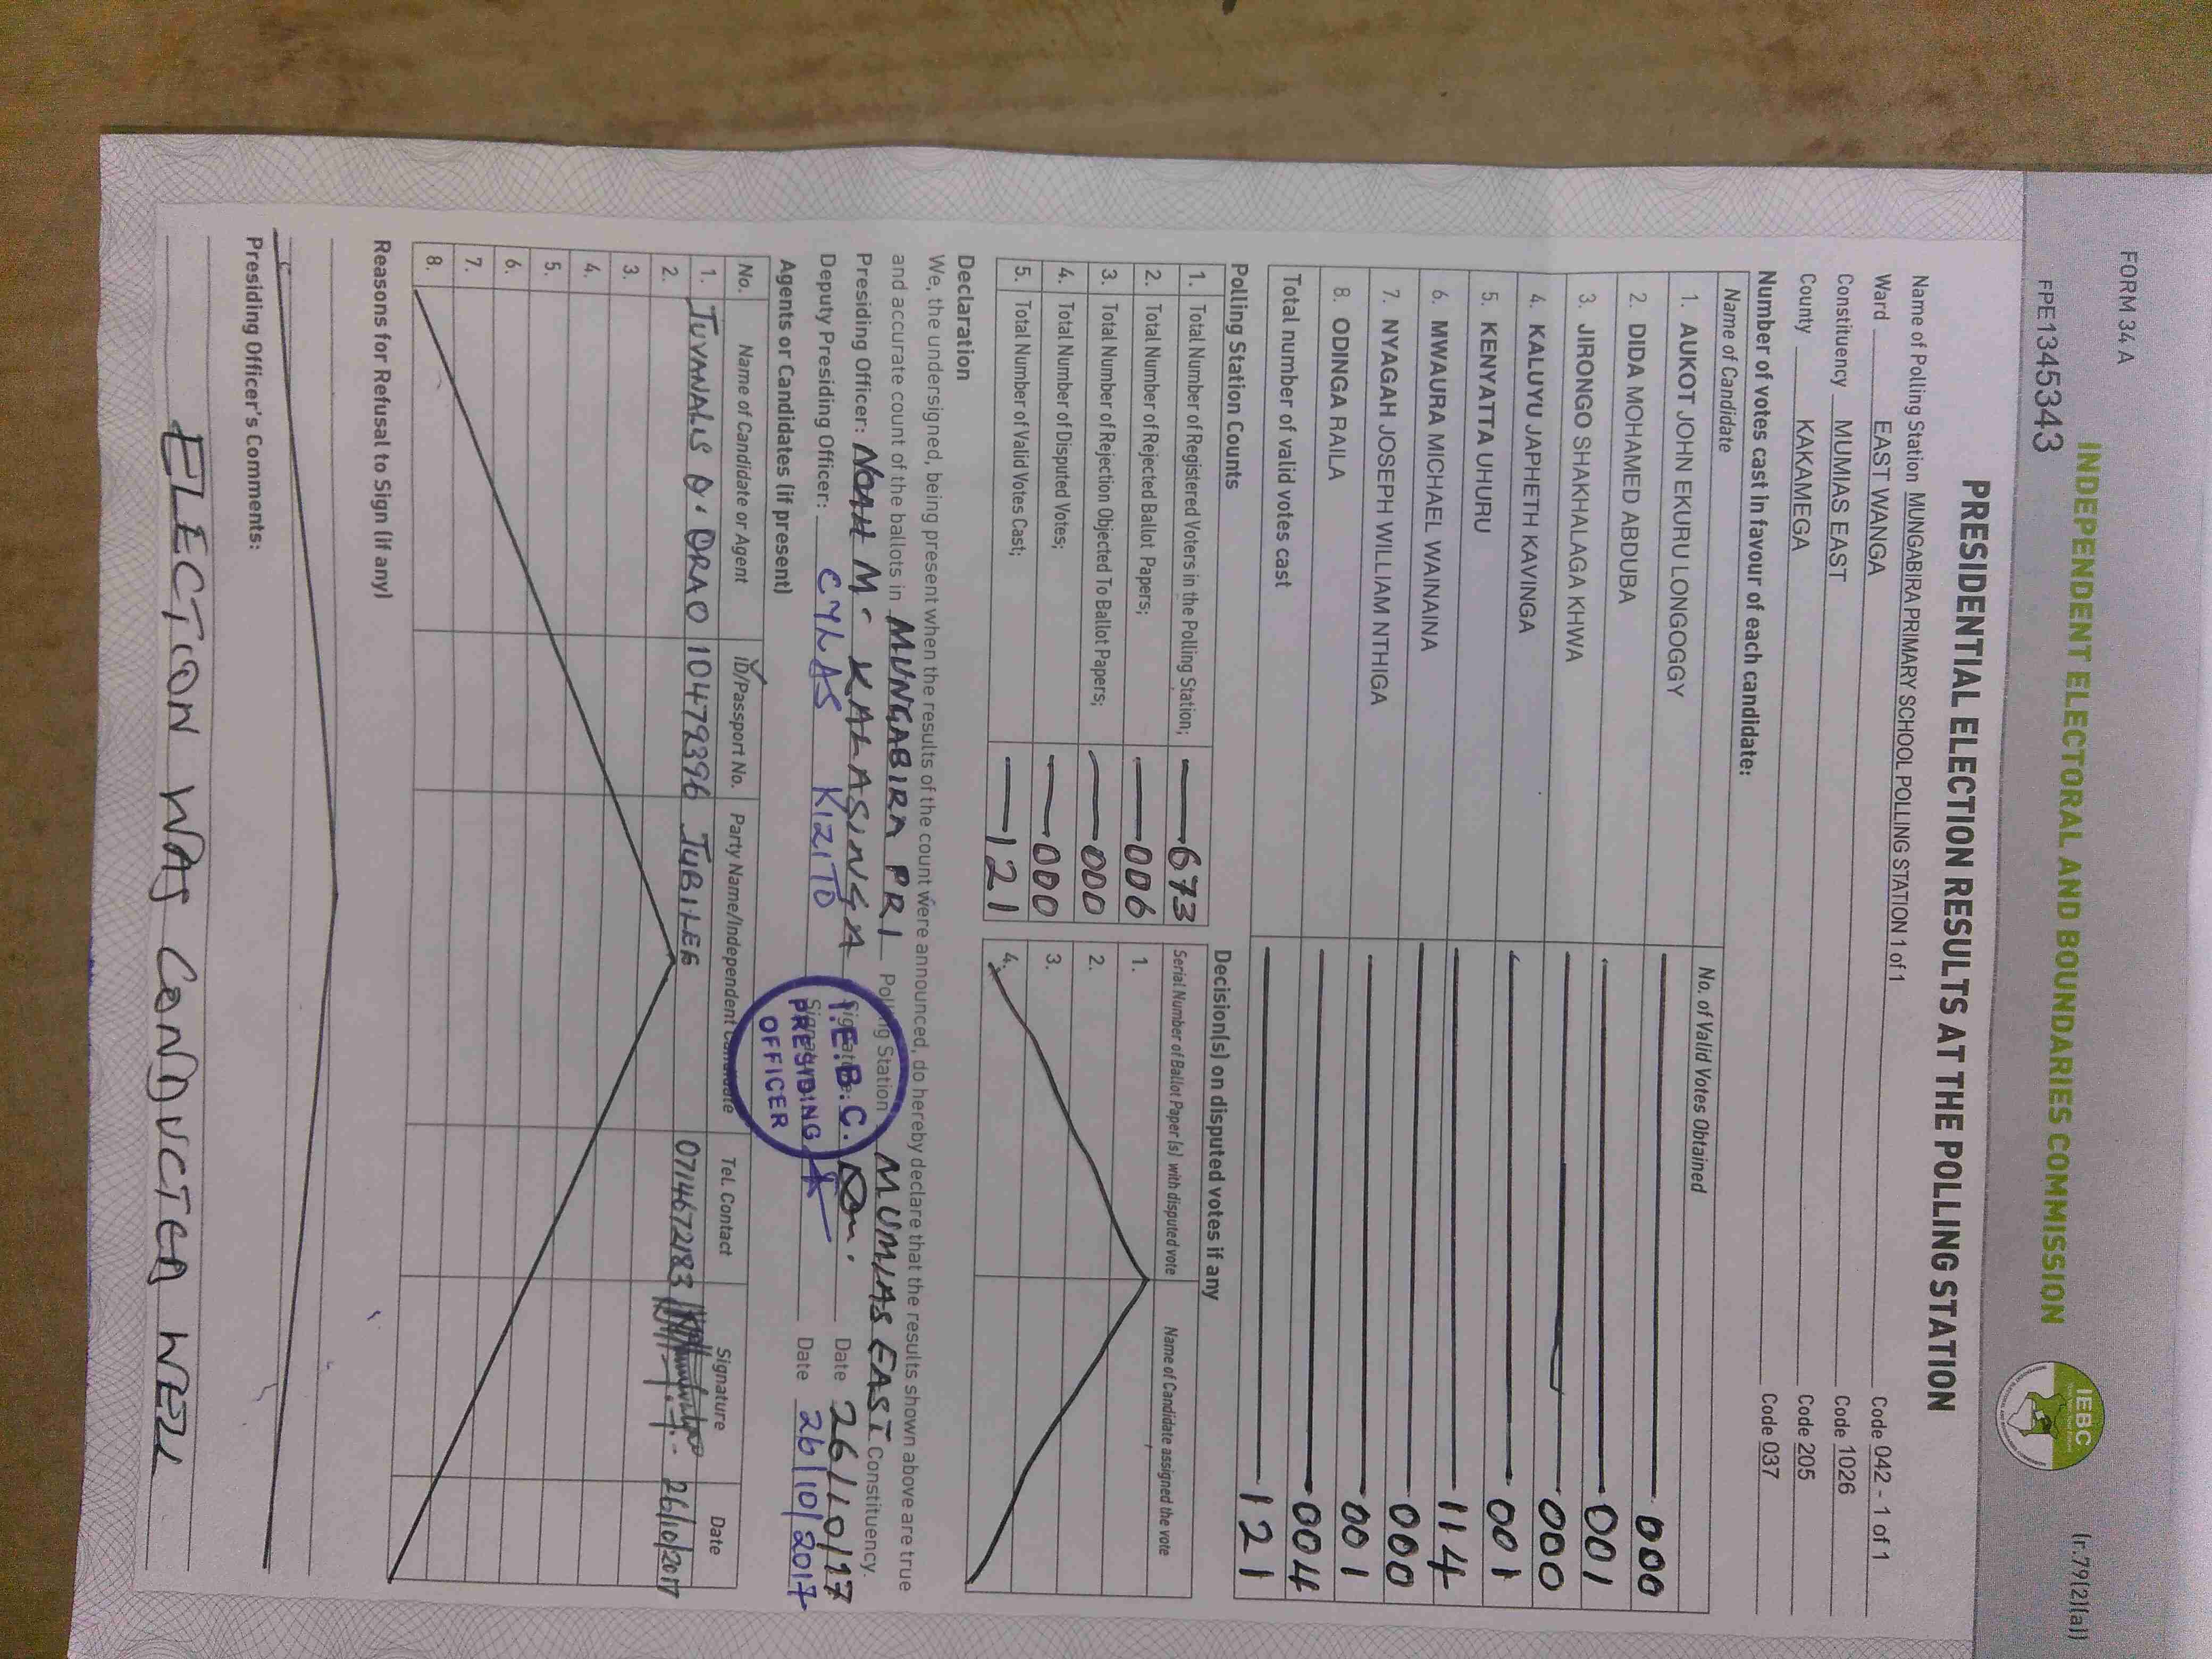 FORM 34 A
(r.79(2)(a))
INDEPENDENT ELECTORAL AND BOUNDARIES COMMISSION
IEBC
FPE1345343
PRESIDENTIAL ELECTION RESULTS AT THE POLLING STATION
Name of Polling Station MUNGABIRA PRIMARY SCHOOL POLLING STATION 1 of 1 Code 042 - 1 of 1
Ward EAST WANGA Code 1026
Constituency MUMIAS EAST Code 205
County KAKAMEGA Code 037
Number of votes cast in favour of each candidate:
Name of Candidate No. of Valid Votes Obtained
1. AUKOT JOHN EKURU LONGOGGY 000
2. DIDA MOHAMED ABDUBA 001
3. JIRONGO SHAKHALAGA KHWA 000
4. KALUYU JAPHETH KAVINGA 001
5. KENYATTA UHURU 114
6. MWAURA MICHAEL WAINAINA 000
7. NYAGAH JOSEPH WILLIAM NTHIGA 001
8. ODINGA RAILA 004
Total number of valid votes cast 121
Polling Station Counts
1. Total Number of Registered Voters in the Polling Station; 673
2. Total Number of Rejected Ballot Papers; 006
3. Total Number of Rejection Objected To Ballot Papers; 000
4. Total Number of Disputed Votes; 000
5. Total Number of Valid Votes Cast; 121
Decision(s) on disputed votes if any
Serial Number of Ballot Paper (s) with disputed vote Name of Candidate assigned the vote
1.
2.
3.
4.
Declaration
We, the undersigned, being present when the results of the count were announced, do hereby declare that the results shown above are true
and accurate count of the ballots in MUNGABIRA PRI Polling Station MUMIAS EAST Constituency.
Presiding Officer: NOAH M. KALASINGA Signature: Date 26/10/17
Deputy Presiding Officer: CYLAS KIZITO Signature: Date 26/10/2017
I.E.B.C.
PRESIDING
OFFICER
Agents or Candidates (if present)
No. Name of Candidate or Agent ID/Passport No. Party Name/Independent Candidate Tel. Contact Signature Date
1. JUVANALIS O. ORAO 10479396 JUBILEE 0714672183 26/10/2017
2.
3.
4.
5.
6.
7.
8.
Reasons for Refusal to Sign (if any)
Presiding Officer's Comments:
ELECTION WAS CONDUCTED WELL